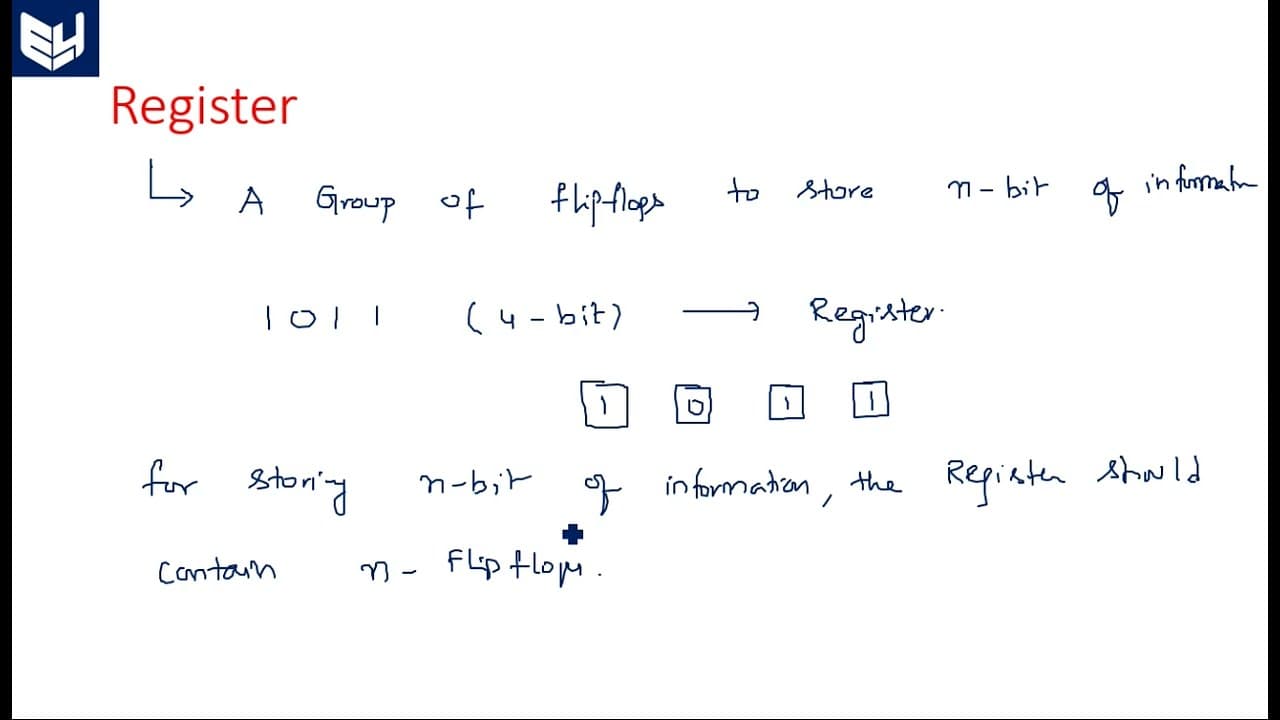 EY
Register
A Group of flipflops to store n-bit of informatn
1011 (4-bit) → Register.
1 0 1 1
for storing n-bit of information, the Register should
contain n- Flipflops.